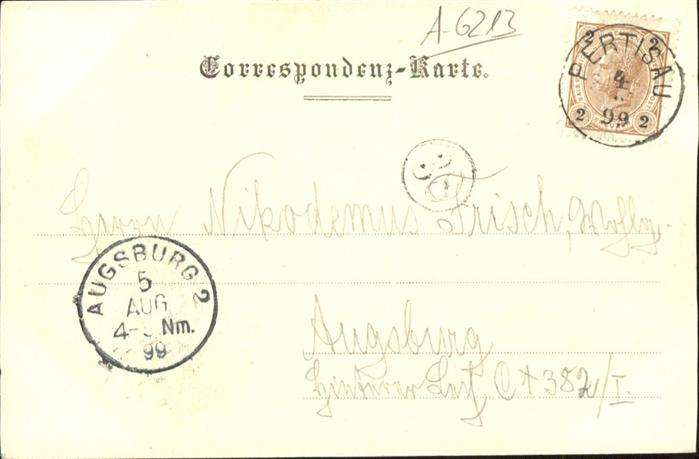 A-6213
Correspondenz-Karte.
2 2
PERTISAU
4
99
2 2
Herrn Nikodemus Frisch,
AUGSBURG 2
5
AUG
4- Nm.
99
Augsburg
Hinterer C 382/I.